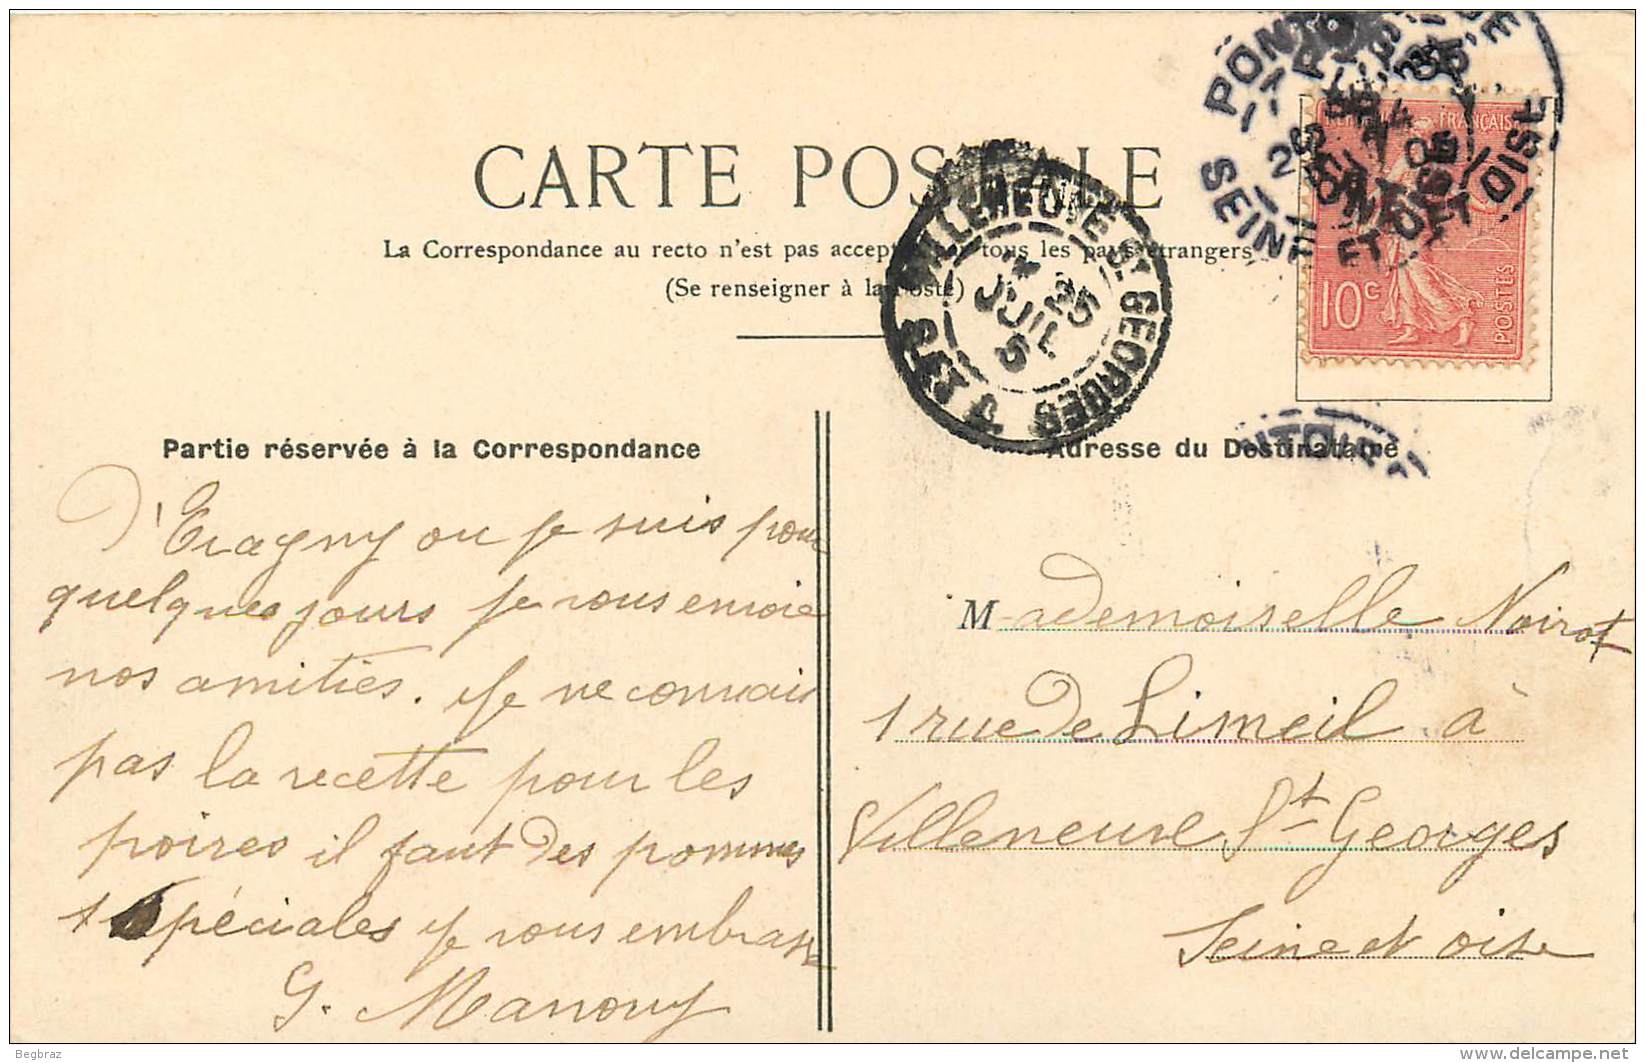 CARTE POSTALE
La Correspondance au recto n'est pas acceptée par tous les pays étrangers
(Se renseigner à la Poste)
RÉPUBLIQUE FRANÇAISE
10c
POSTES
PONTOISE
SEINE ET OISE
VILLENEUVE ST GEORGES
JUIL
Partie réservée à la Correspondance
Adresse du Destinataire
D'Eragny ou je suis pour
quelques jours je vous envoie
nos amitiés. Je ne connais
pas la recette pour les
poires il faut des pommes
spéciales je vous embrasse
G. Manouy
Mademoiselle Noirot
1 rue de Limeil à
Villeneuve St Georges
Seine et oise
Begbraz
www.delcampe.net